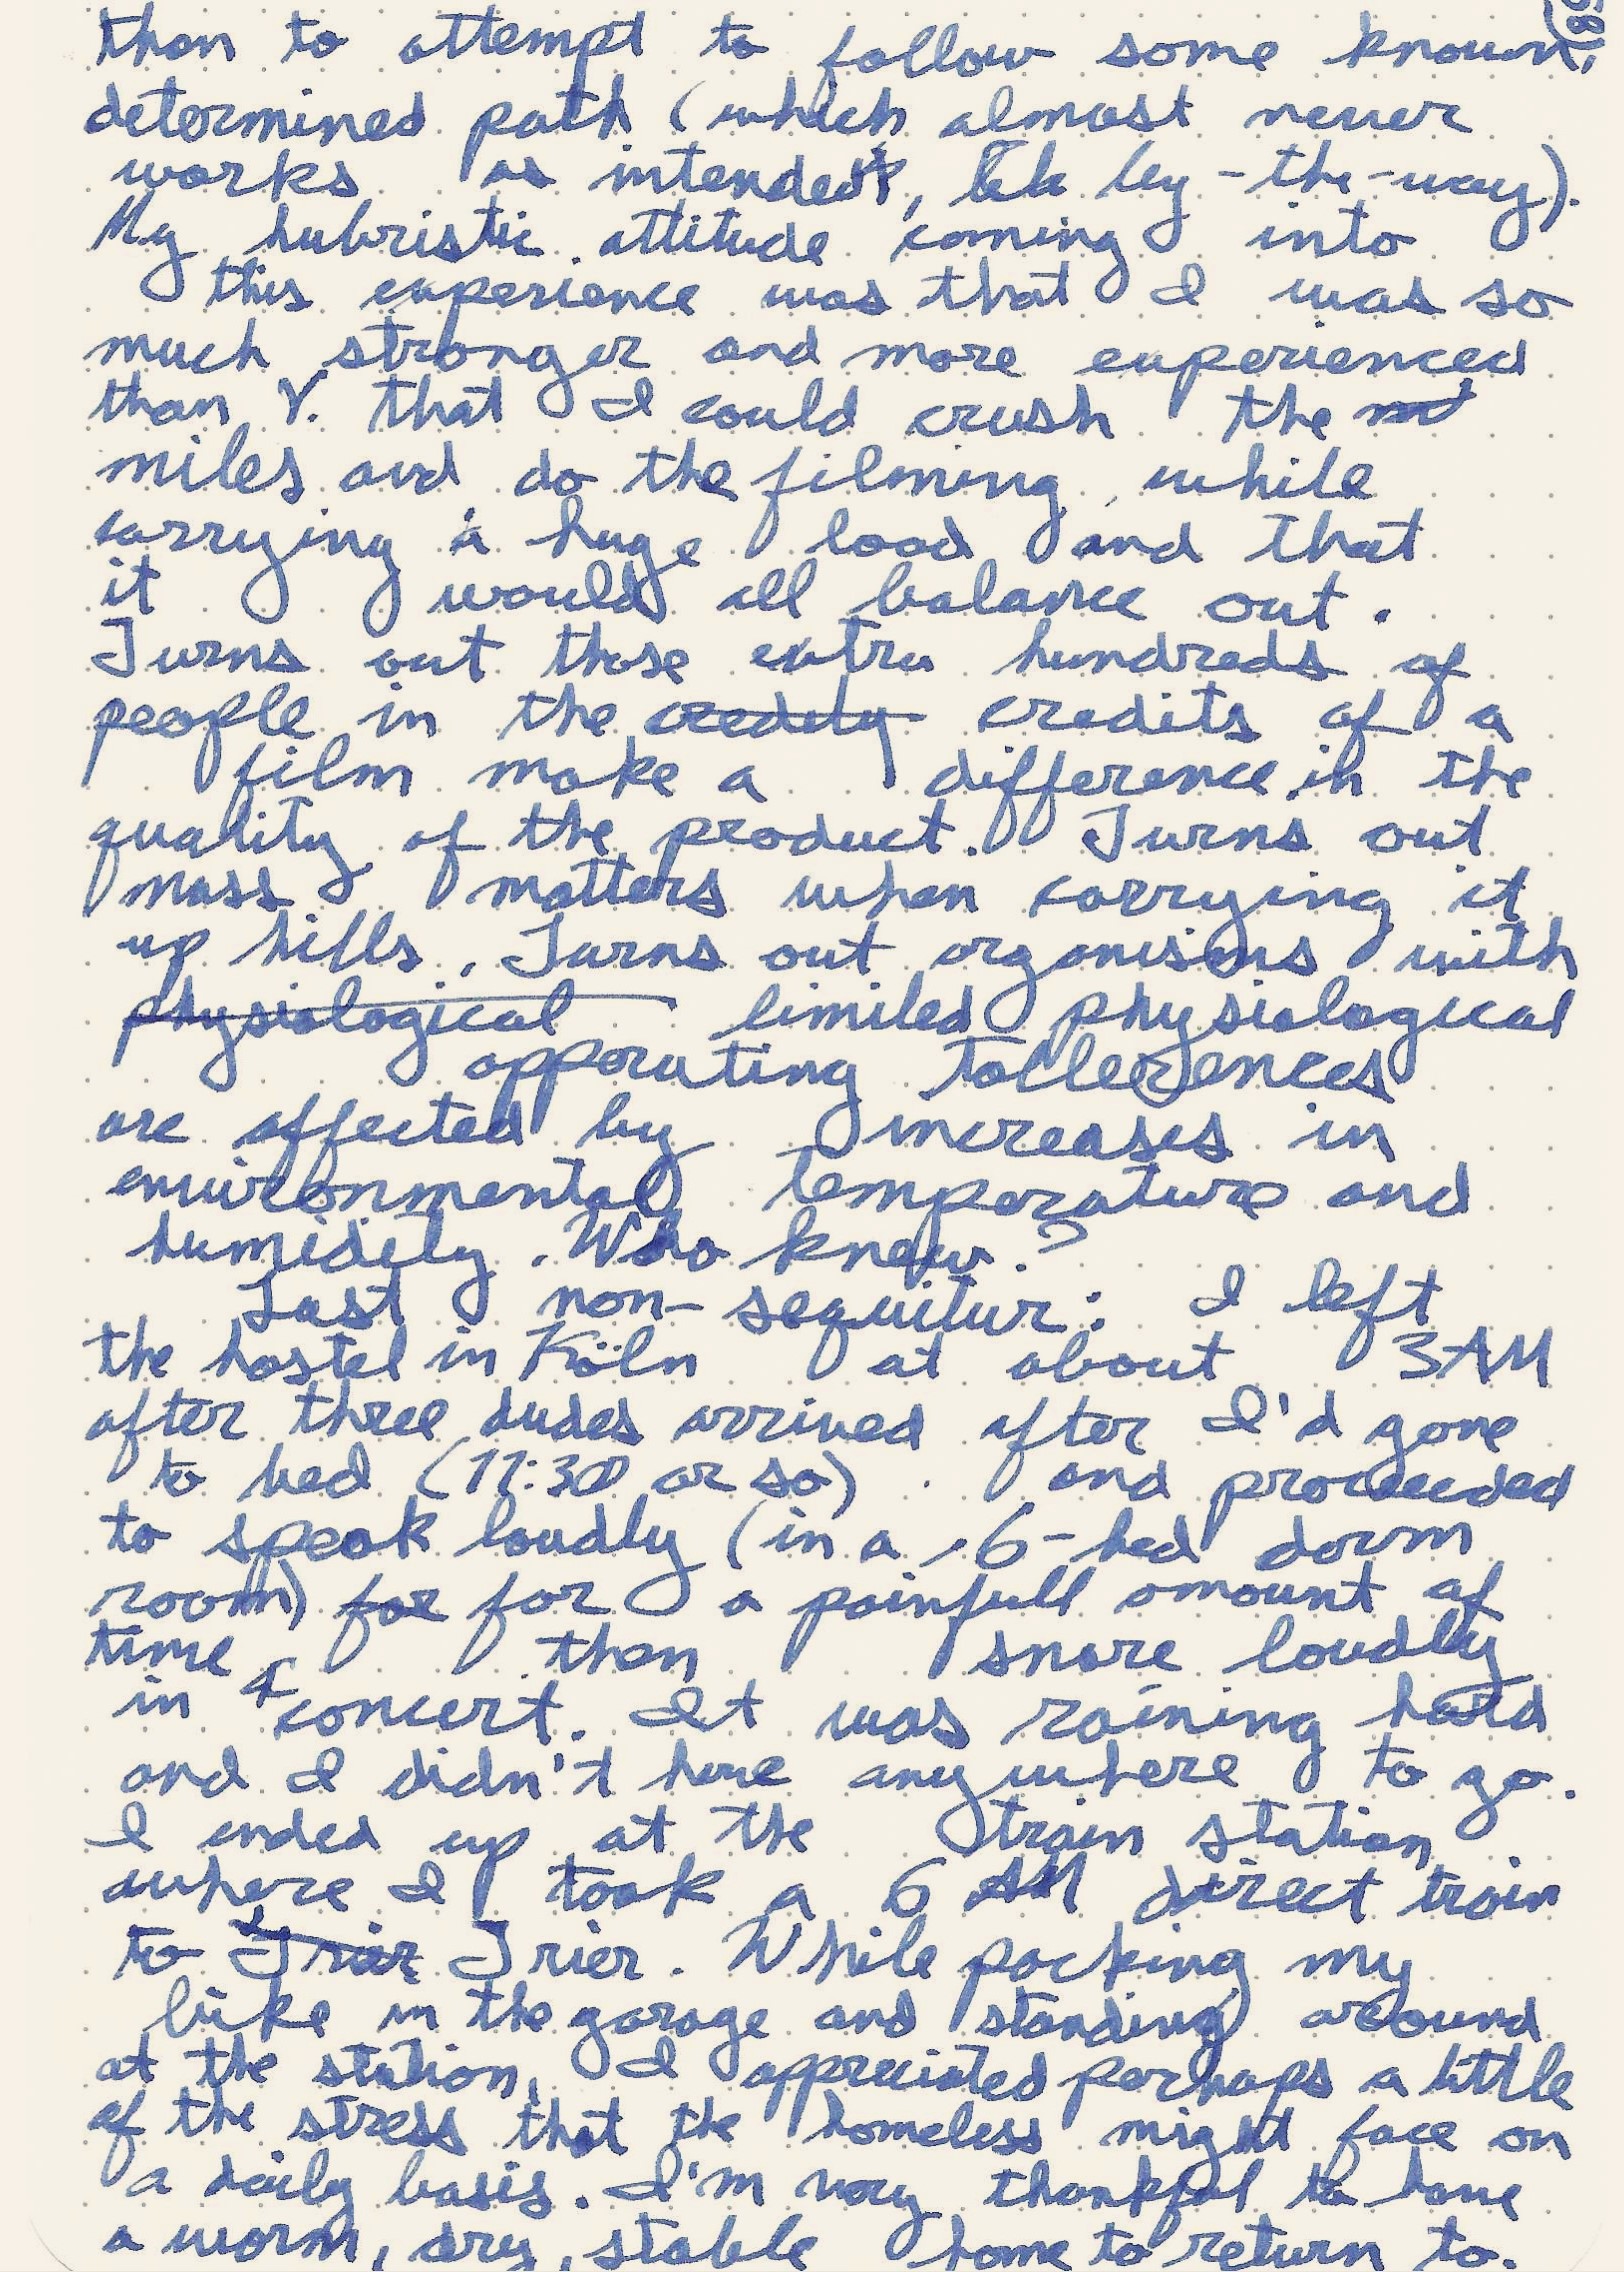 than to attempt to follow some known,
determined path (which almost never
works as intended, by-the-way).
My hubristic attitude coming into
this experience was that I was so
much stronger and more experienced
than V. that I could crush the
miles and do the filming, while
carrying a huge load and that
it would all balance out.
Turns out those extra hundreds of
people in the credits of a
film make a difference in the
quality of the product. Turns out
mass matters when carrying it
up hills. Turns out organisms with
physiological limited physiological
opporating tollerences
are affected by increases in
environmental temperature and
humidity. Who knew?
Last non-sequitur: I left
the hostel in Köln at about 3AM
after three dudes arrived after I'd gone
to bed (11:30 or so) and proceeded
to speak loudly (in a 6-bed dorm
room) for for a painfull amount of
time, then snore loudly
in concert. It was raining hard
and I didn't have anywhere to go.
I ended up at the train station
where I took a 6 AM direct train
to Trier Trier. While packing my
bike in the garage and standing around
at the station, I appreciated perhaps a little
of the stress that the homeless might face on
a daily basis. I'm very thankful to have
a warm, dry, stable home to return to.